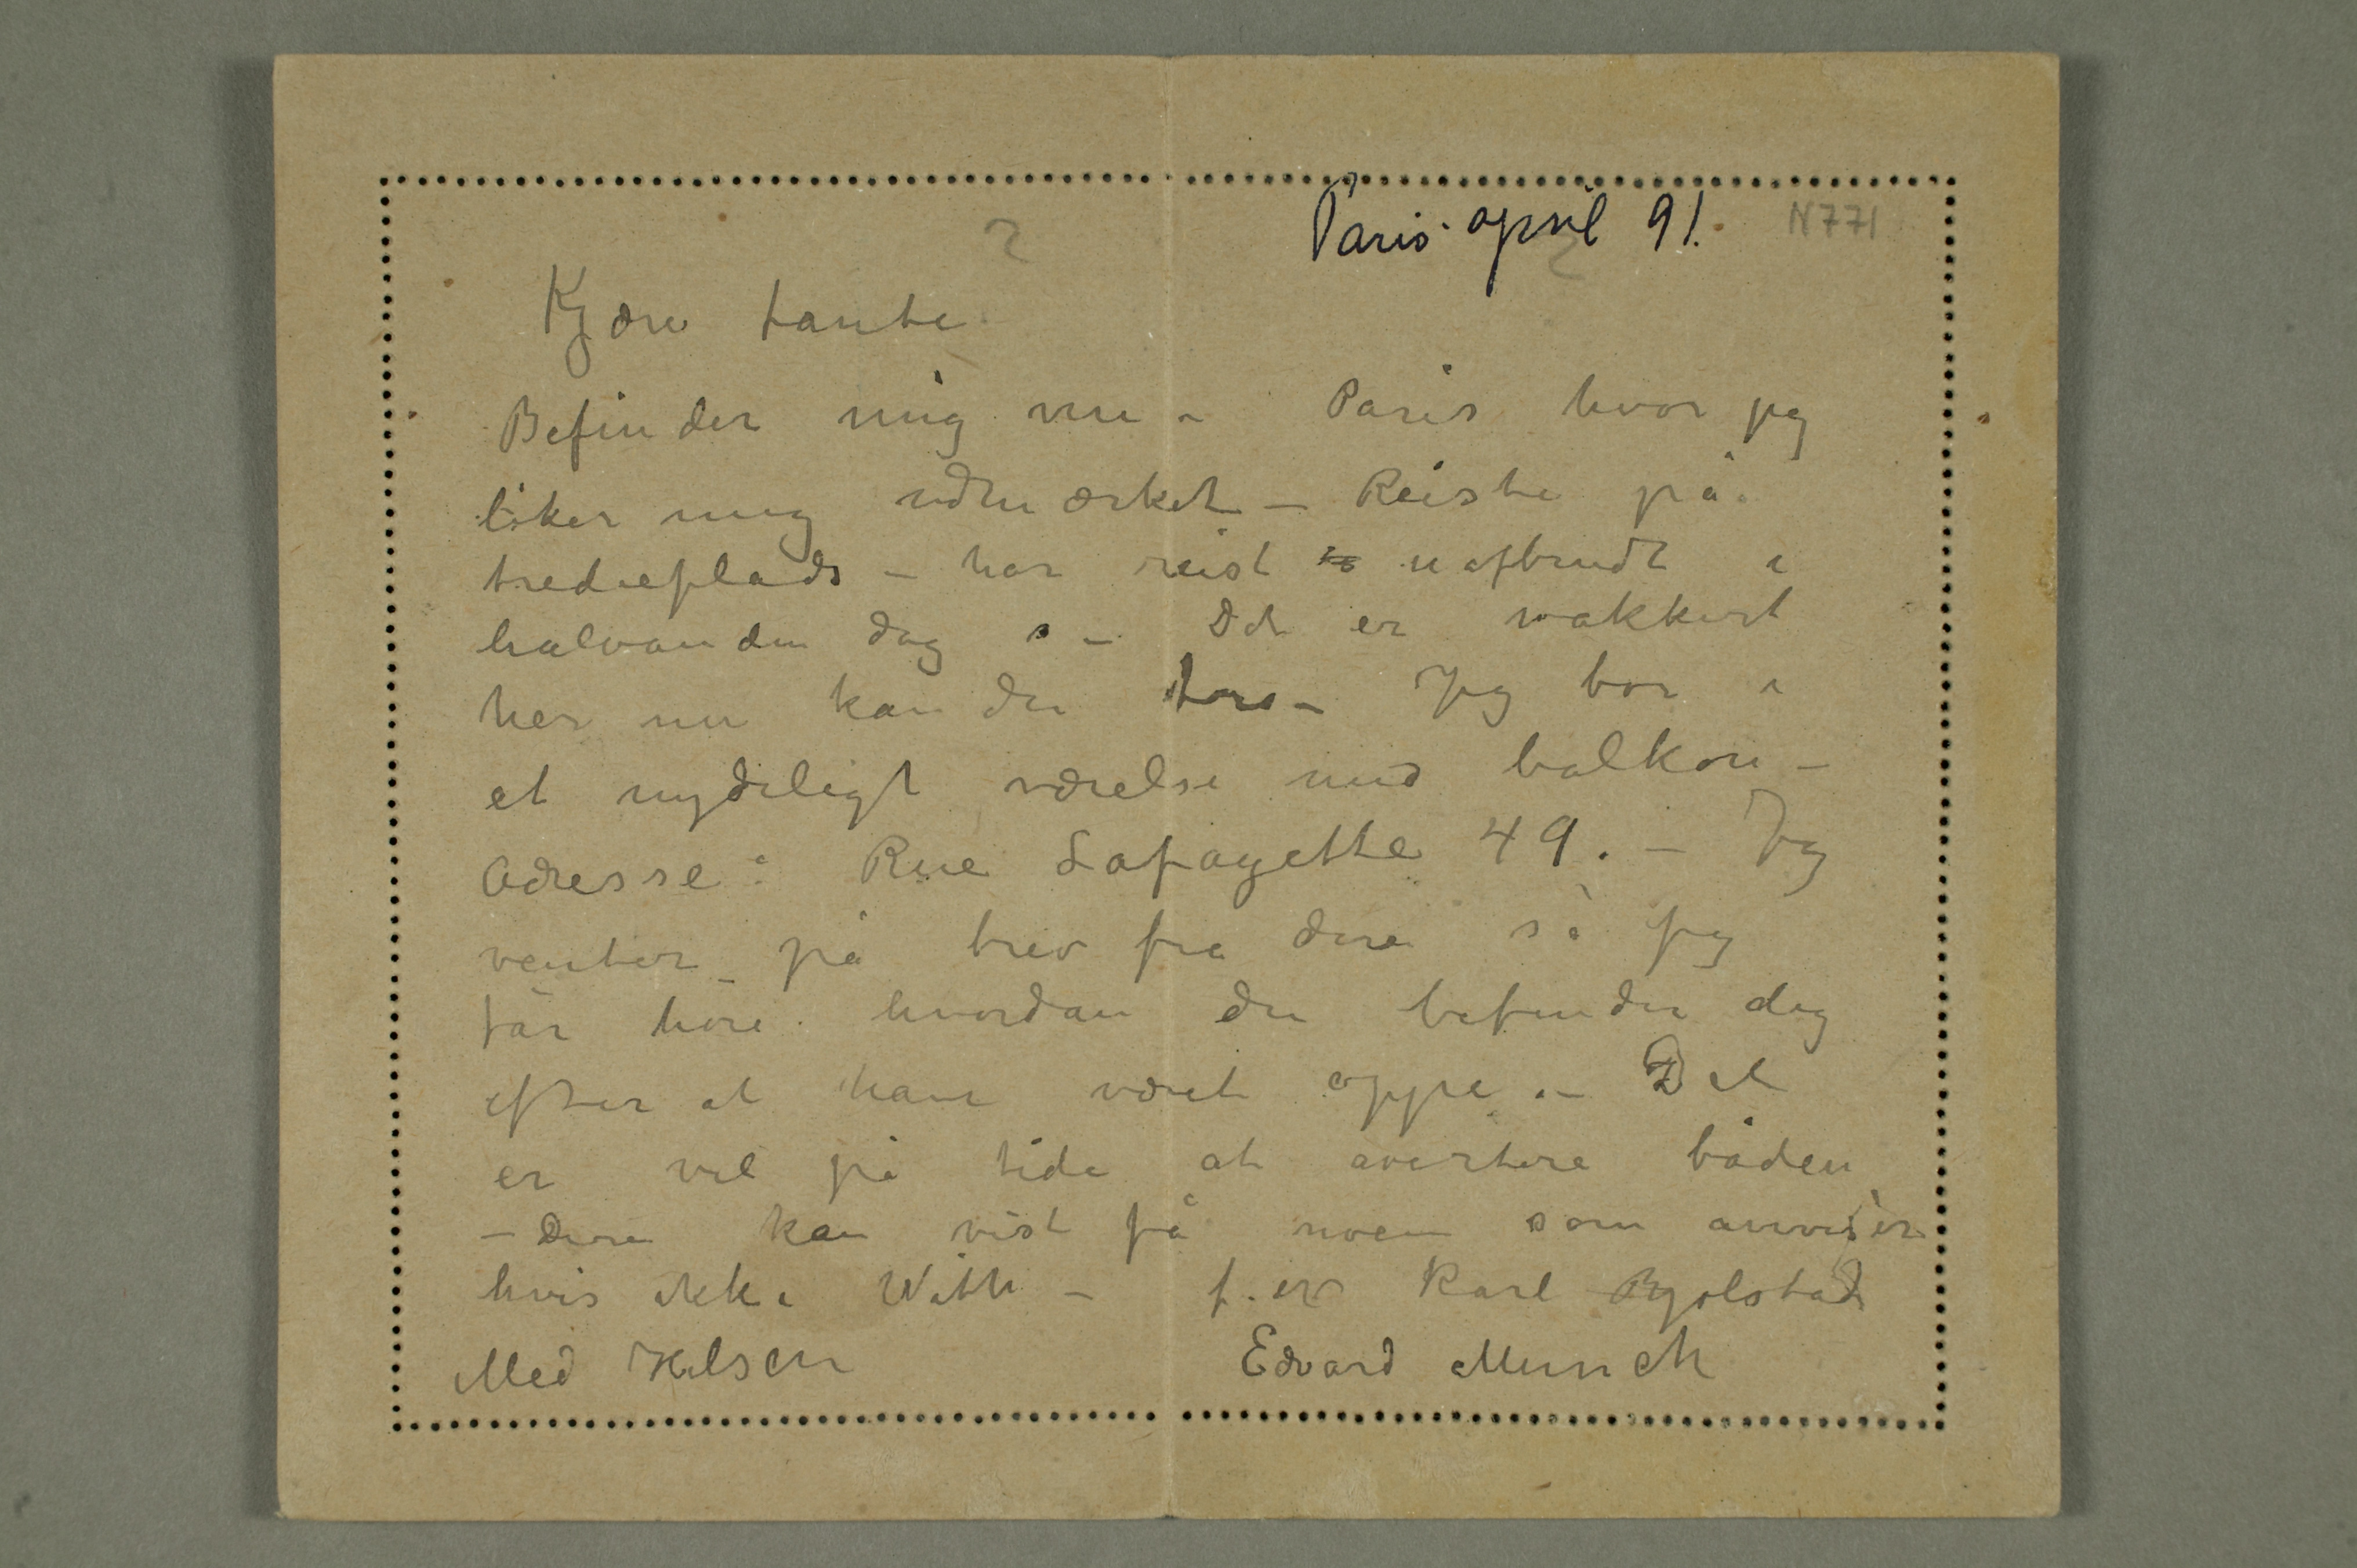 Paris april 91. N771
?
Kjære tante
Befinder mig nu i Paris hvor jeg
liker mig udmærket – Reiste på
tredieplads – har reist uafbrudt i
halvanden dag – Det er vakkert
her nu kan du tro – Jeg bor i
et nydeligt værelse med balkon –
Adresse: Rue Lafayette 49. – Jeg
venter på brev fra dere så jeg
får høre hvordan du befinder dig
efter at have været oppe. – Det
er vel på tide at avertere båden
– Dere kan vist få noen som anviser
hvis ikke With – f. ex Karl Bjølstad
Med Hilsen Edvard Munch